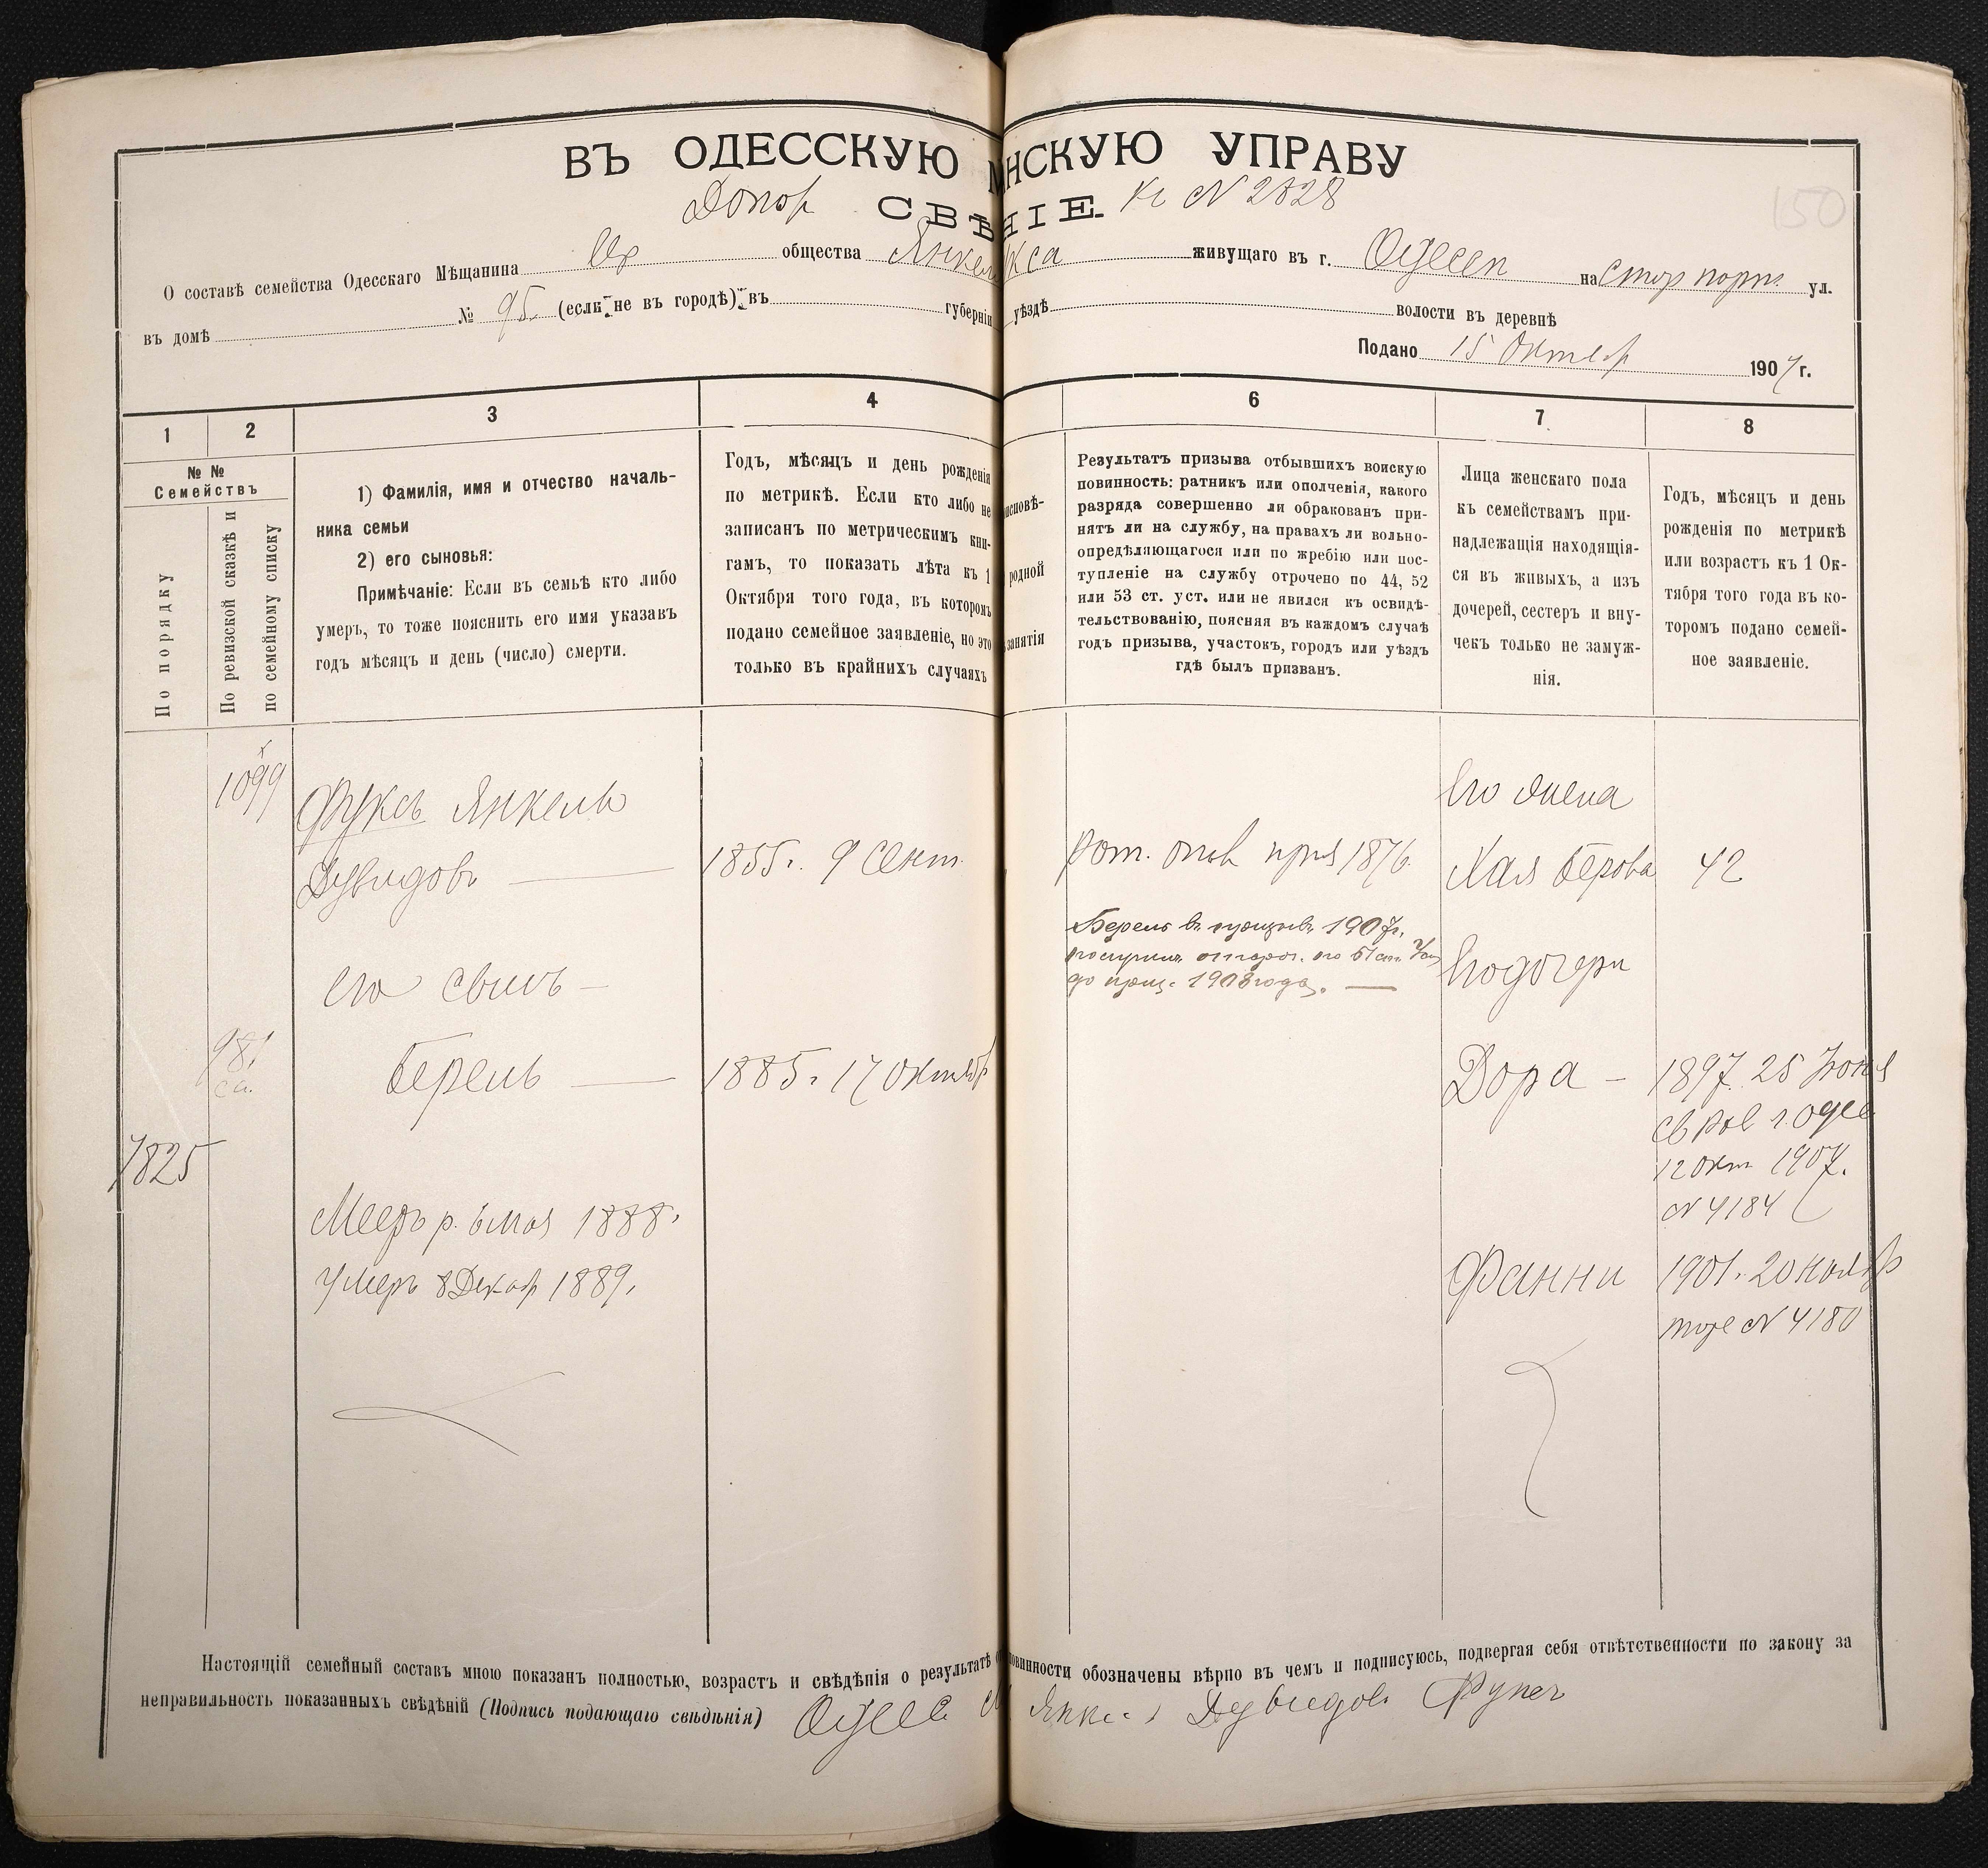 ВЪ ОДЕССКУЮ НСКУЮ УПРАВУ
СВѢ НІЕ. къ N 2828
150
О составѣ семейства Одесскаго Мѣщанина общества Янкел кса живущаго въ г. Одессѣ на Стар порт. ул.
въ домѣ № 95. (если не въ городѣ) въ губерніи уѣздѣ волости въ деревнѣ
Подано 15 Октябр 1907 г.
1 2 3 4 6 7 8
№ №
Семействъ
По порядку
По ревизской сказкѣ и
по семейному списку
1) Фамилія, имя и отчество началь-
ника семьи
2) его сыновья:
Примѣчаніе: Если въ семьѣ кто либо
умеръ, то тоже пояснить его имя указавъ
годъ мѣсяцъ и день (число) смерти.
Годъ, мѣсяцъ и день рожденія
по метрикѣ. Если кто либо не
записанъ по метрическимъ кни-
гамъ, то показать лѣта къ 1
Октября того года, въ которомъ
подано семейное заявленіе, но это
только въ крайнихъ случаяхъ
исповѣ-
родной
занятія
Результатъ призыва отбывшихъ воискую
повинность: ратникъ или ополченія, какого
разряда совершенно ли обракованъ при-
нятъ ли на службу, на правахъ ли вольно-
опредѣляющагося или по жребію или пос-
тупленіе на службу отрочено по 44, 52
или 53 ст. уст. или не явился къ освидѣ-
тельствованію, поясняя въ каждомъ случаѣ
годъ призыва, участокъ, городъ или уѣздъ
гдѣ былъ призванъ.
Лица женскаго пола
къ семействамъ при-
надлежащія находящія-
ся въ живыхъ, а изъ
дочерей, сестеръ и вну-
чекъ только не замуж-
нія.
Годъ, мѣсяцъ и день
рожденія по метрикѣ
или возрастъ къ 1 Ок-
тября того года въ ко-
торомъ подано семей-
ное заявленіе.
1099
Фуксъ Янкель
Дувидовъ
1855г. 9 Сент.
рат. опол приз 1876.
Его жена
Хая Берова 42
Берель въ призывъ 1907г.
до приз. 1908 года.
его сынъ
981
Берель
1885г. 17 октябр
Его дочери
Дора
1897. 25 Іюня
св рав г. Одес
12 окт 1907.
N 4184
7825
Мееръ р. 6 мая 1888.
умеръ 8 Декабр 1889.
Фанни
1901. 20 ноябр
тоже N 4180
Настоящій семейный составъ мною показанъ полностью, возрастъ и свѣдѣнія о результатѣ повинности обозначены вѣрно въ чемъ и подписуюсь, подвергая себя отвѣтственности по закону за
неправильность показанныхъ свѣдѣній (Подпись подающаго свѣдѣнія) Одесс М Янке Дувидовъ Фуксъ